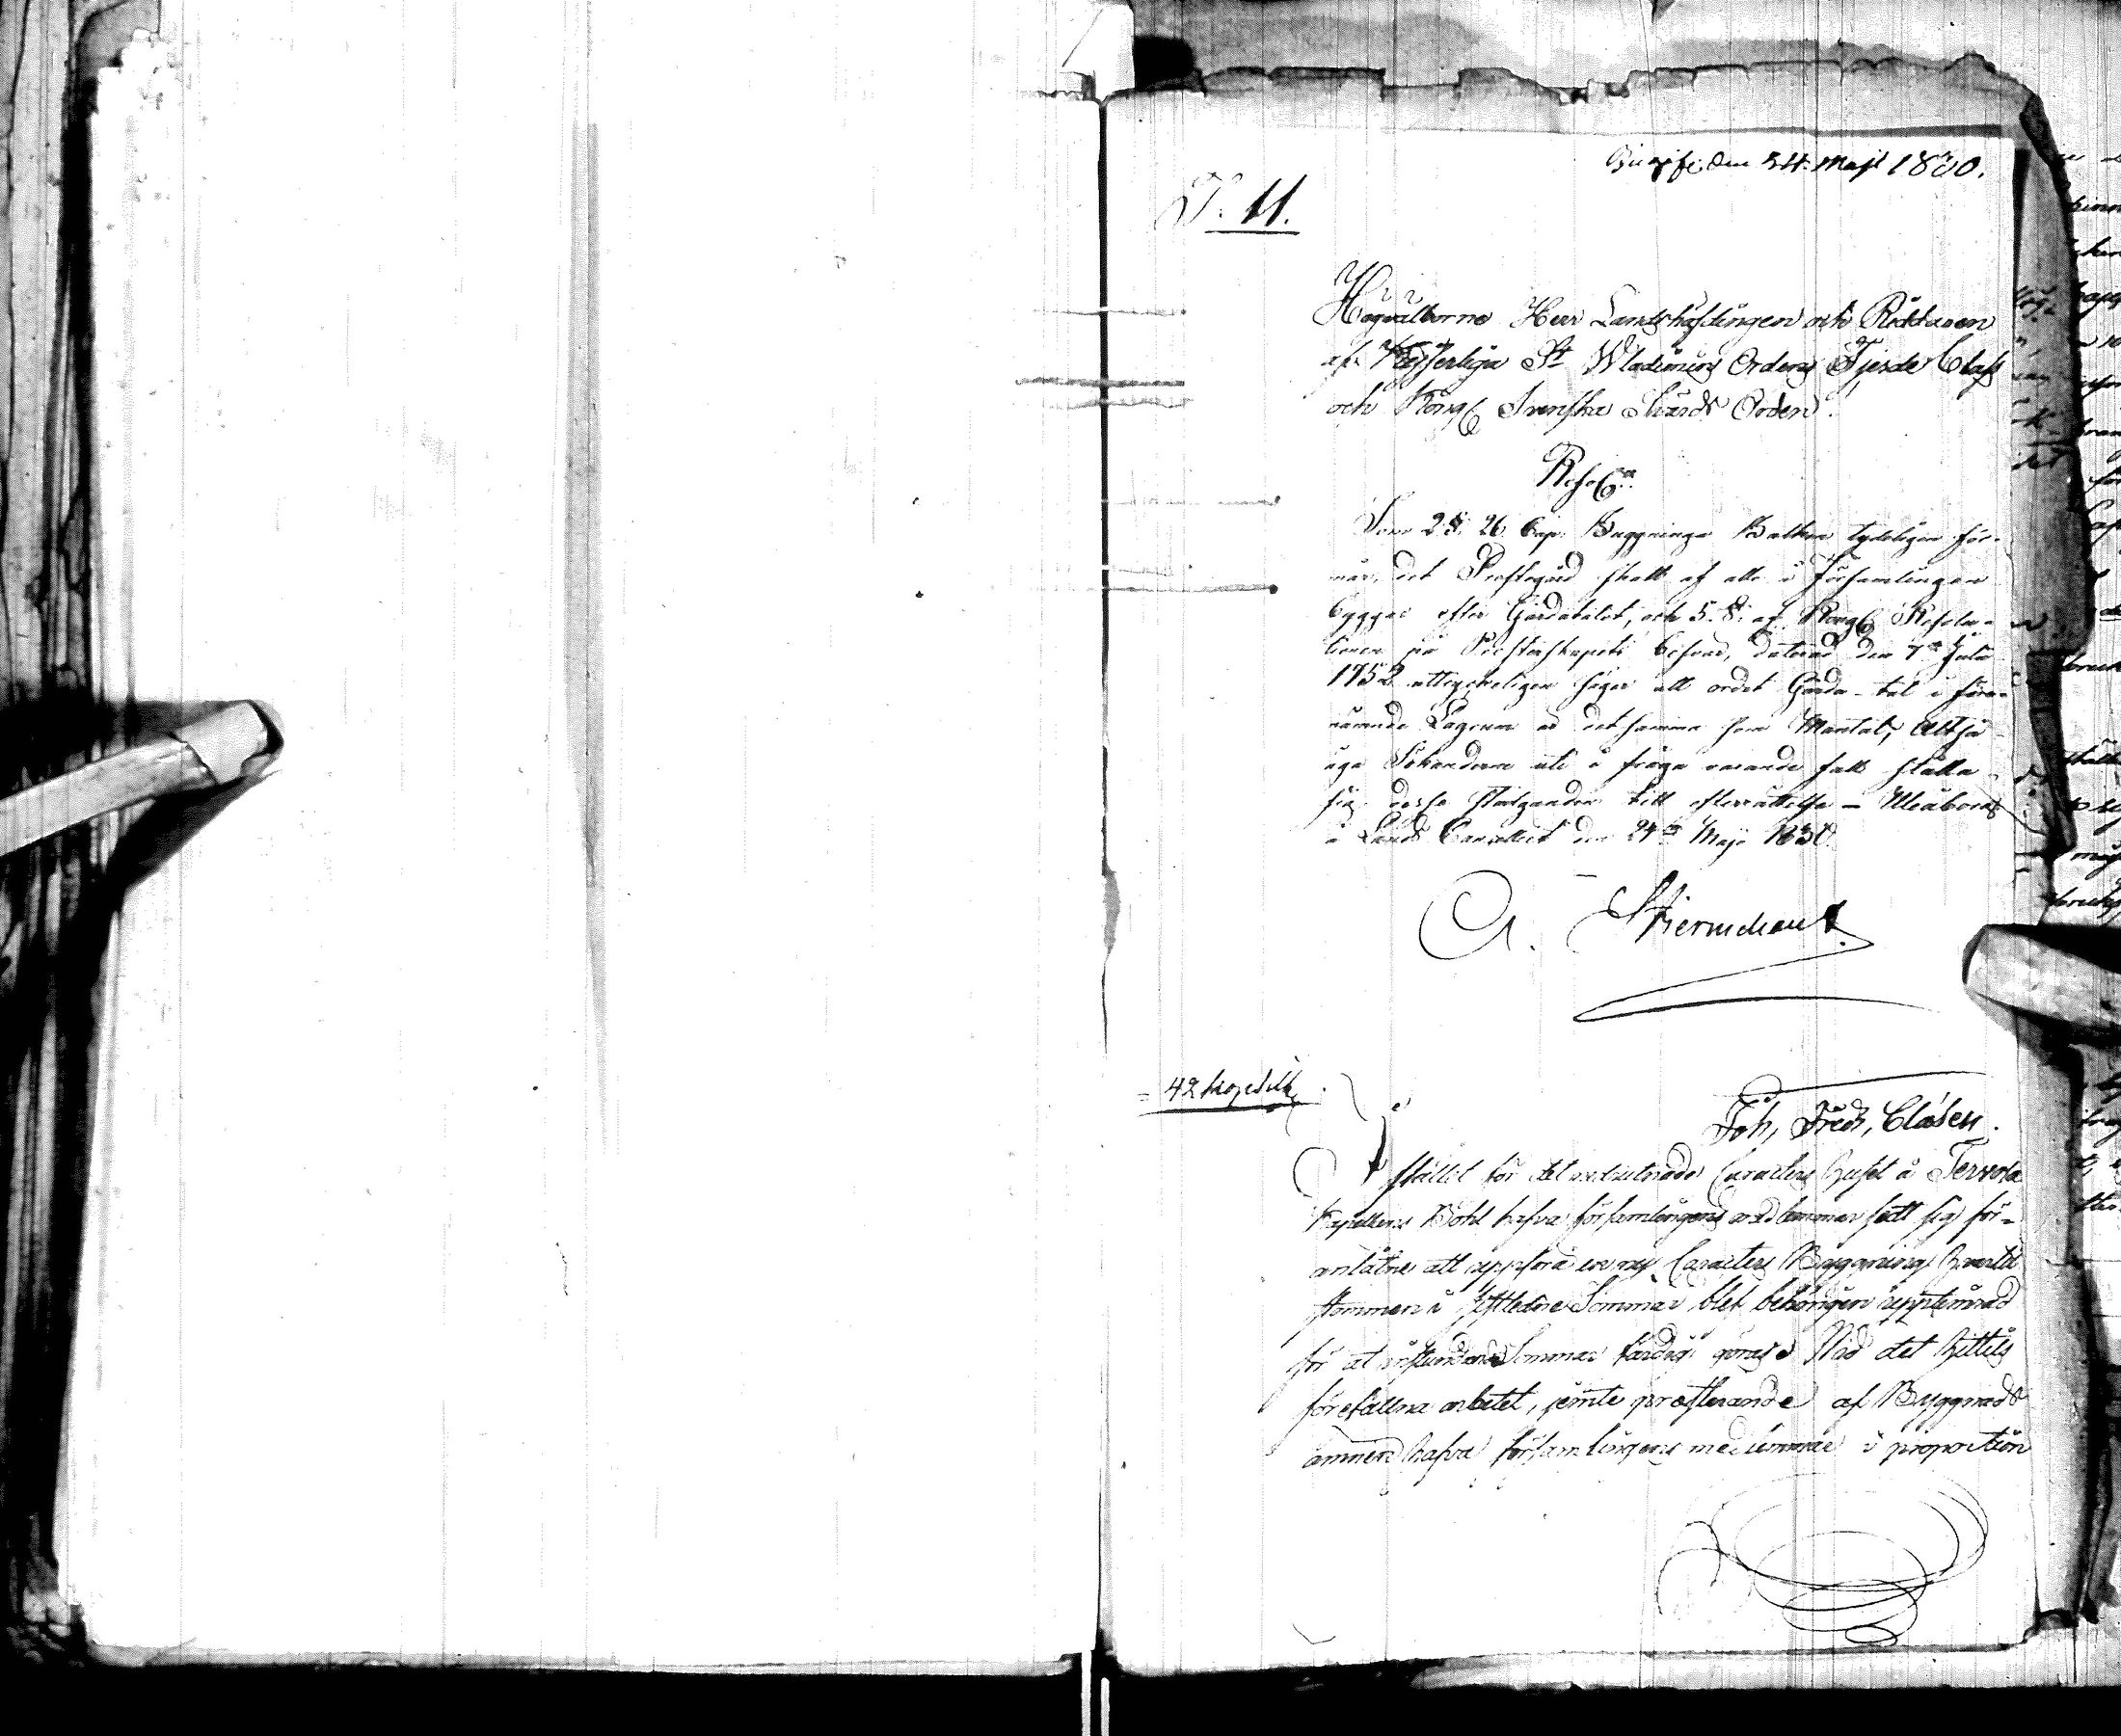 Ingifv. den 24. Maji 1830.
T. 11.
Högvälborne Herr Landshöfdingen och Riddaren
af Kejserliga St Wladimirs Ordens Fjerde Class
och Kongl Svenska Svärds Orden!
Resol:n
Som 2 §. 26 Cap. Byggninga Balken tydeligen för-
mår, det Prestegård skall af alla i Församlingen
byggas efter Gårdatalet, och 5. §. af Kongl Resolu-
tionen på Presterskapets besvär, daterad den 7 Julii
1752 uttryckeligen säger att ordet Gårda-tal i före-
nämnde Lagrum är detsamma som Mantal; Altså
äga Sökanderne uti i fråga varande fall ställa
sig desse stadganden till efterrättelse – Uleåborg
å Lands Cancelliet den 24 Maji 1830.
A. Stjernschantz
42 kop. silfr
Joh, Fredr, Clasen.
I stället för det Caracters huset å Tervola
Kapellans Bohl hafva församlingens medlemmar sett sig för-
anlåtne att uppföra en ny Caracters Byggning hvartil
stommen i sistledne Sommar blef behörigen upptimrad
för at instundande Sommar färdig göras. Vid det hittils
förefallna arbetet, jemte præsterande af Byggnads
ämnen hafva församlingens medlemmar i proportion